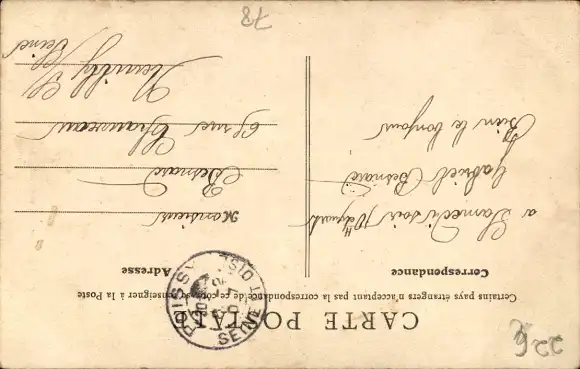 CARTE POSTALE
Certains pays étrangers n'acceptent pas la correspondance de ce côté, se renseigner à la Poste
Correspondance
Adresse
a Samedi soir
Gabriel Besnard
Bien le bonjour
Monsieur
Besnard
6 rue Chauveau
Neuilly s/
Seine
POISSY
SEINE ET OISE
78
226